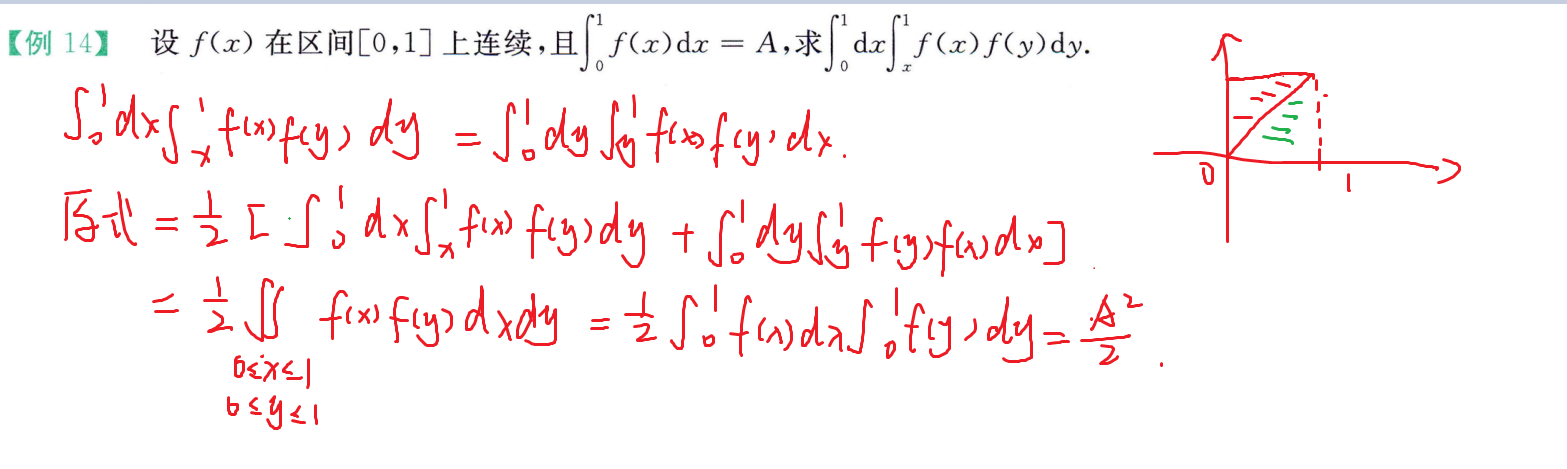 【例 14】 设 f(x) 在区间[0,1]上连续,且∫₀¹ f(x)dx = A,求∫₀¹ dx∫ₓ¹ f(x)f(y)dy.
∫₀¹ dx∫ₓ¹ f(x)f(y) dy = ∫₀¹ dy ∫_y^1 f(x)f(y) dx.
原式 = 1/2 [ ∫₀¹ dx∫ₓ¹ f(x) f(y)dy + ∫₀¹ dy∫_y^1 f(y)f(x)dx ]
= 1/2 ∬ f(x)f(y)dxdy = 1/2 ∫₀¹ f(x)dx∫₀¹ f(y)dy = A²/2 .
0≤x≤1
0≤y≤1
0 1